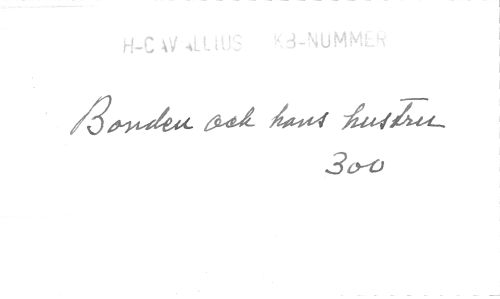 H-CAVALLIUS KB-NUMMER
Bonden och hans hustru
300